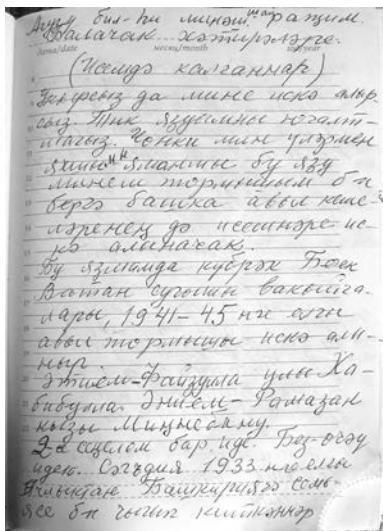 Ачу бил-ги минем шат рашим.
Балачак хәтирәләре.
дата/date месяц/month год/year
(Исемдә калганнар)
Укырсыз да мине искә алыр-
сыз. Тик язуымны югалт-
магыз. Чөнки мин үләрмен
яхшымы яманмы бу язу
минем тормышым б/н
бергә башка авыл кеше-
ләренең дә исемнәре ис-
кә алыначак.
Бу язмамда күбрәк Бөек
Ватан сугышы вакыйга-
лары, 1941-45 нче елгы
авыл тормышы искә алы-
ныр.
Әтием-Файзулла улы Ха-
бибулла. Әнием-Рамазан
кызы Миңнебану.
2 сеңелем бар иде. Без өчәү
идек. Сәгъдия 1933 нче елгы
ачлыктан Башкириягә семь-
ясе б/н чыгып киткәннәр